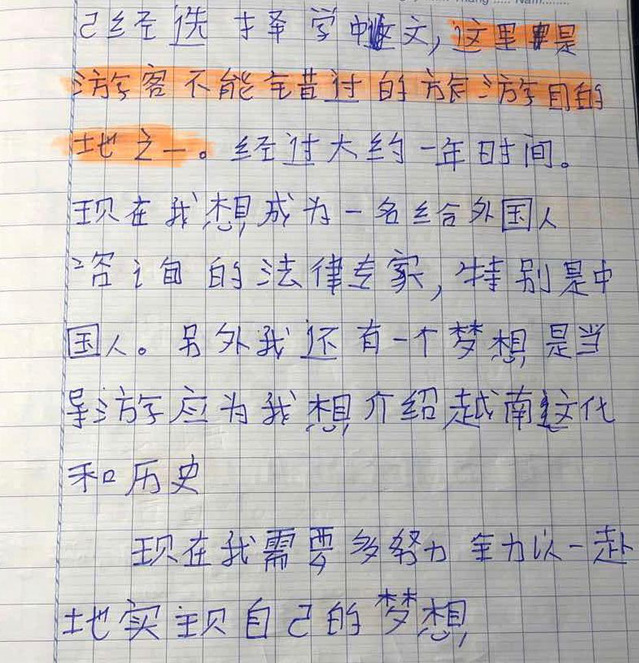 己经选择学中文,这里是
游客不能错过的旅游目的
地之一。经过大约一年时间。
现在我想成为一名给外国人
咨询的法律专家,特别是中
国人。另外我还有一个梦想是当
导游应为我想介绍越南文化
和历史
现在我需要多努力全力以一赴
地实现自己的梦想